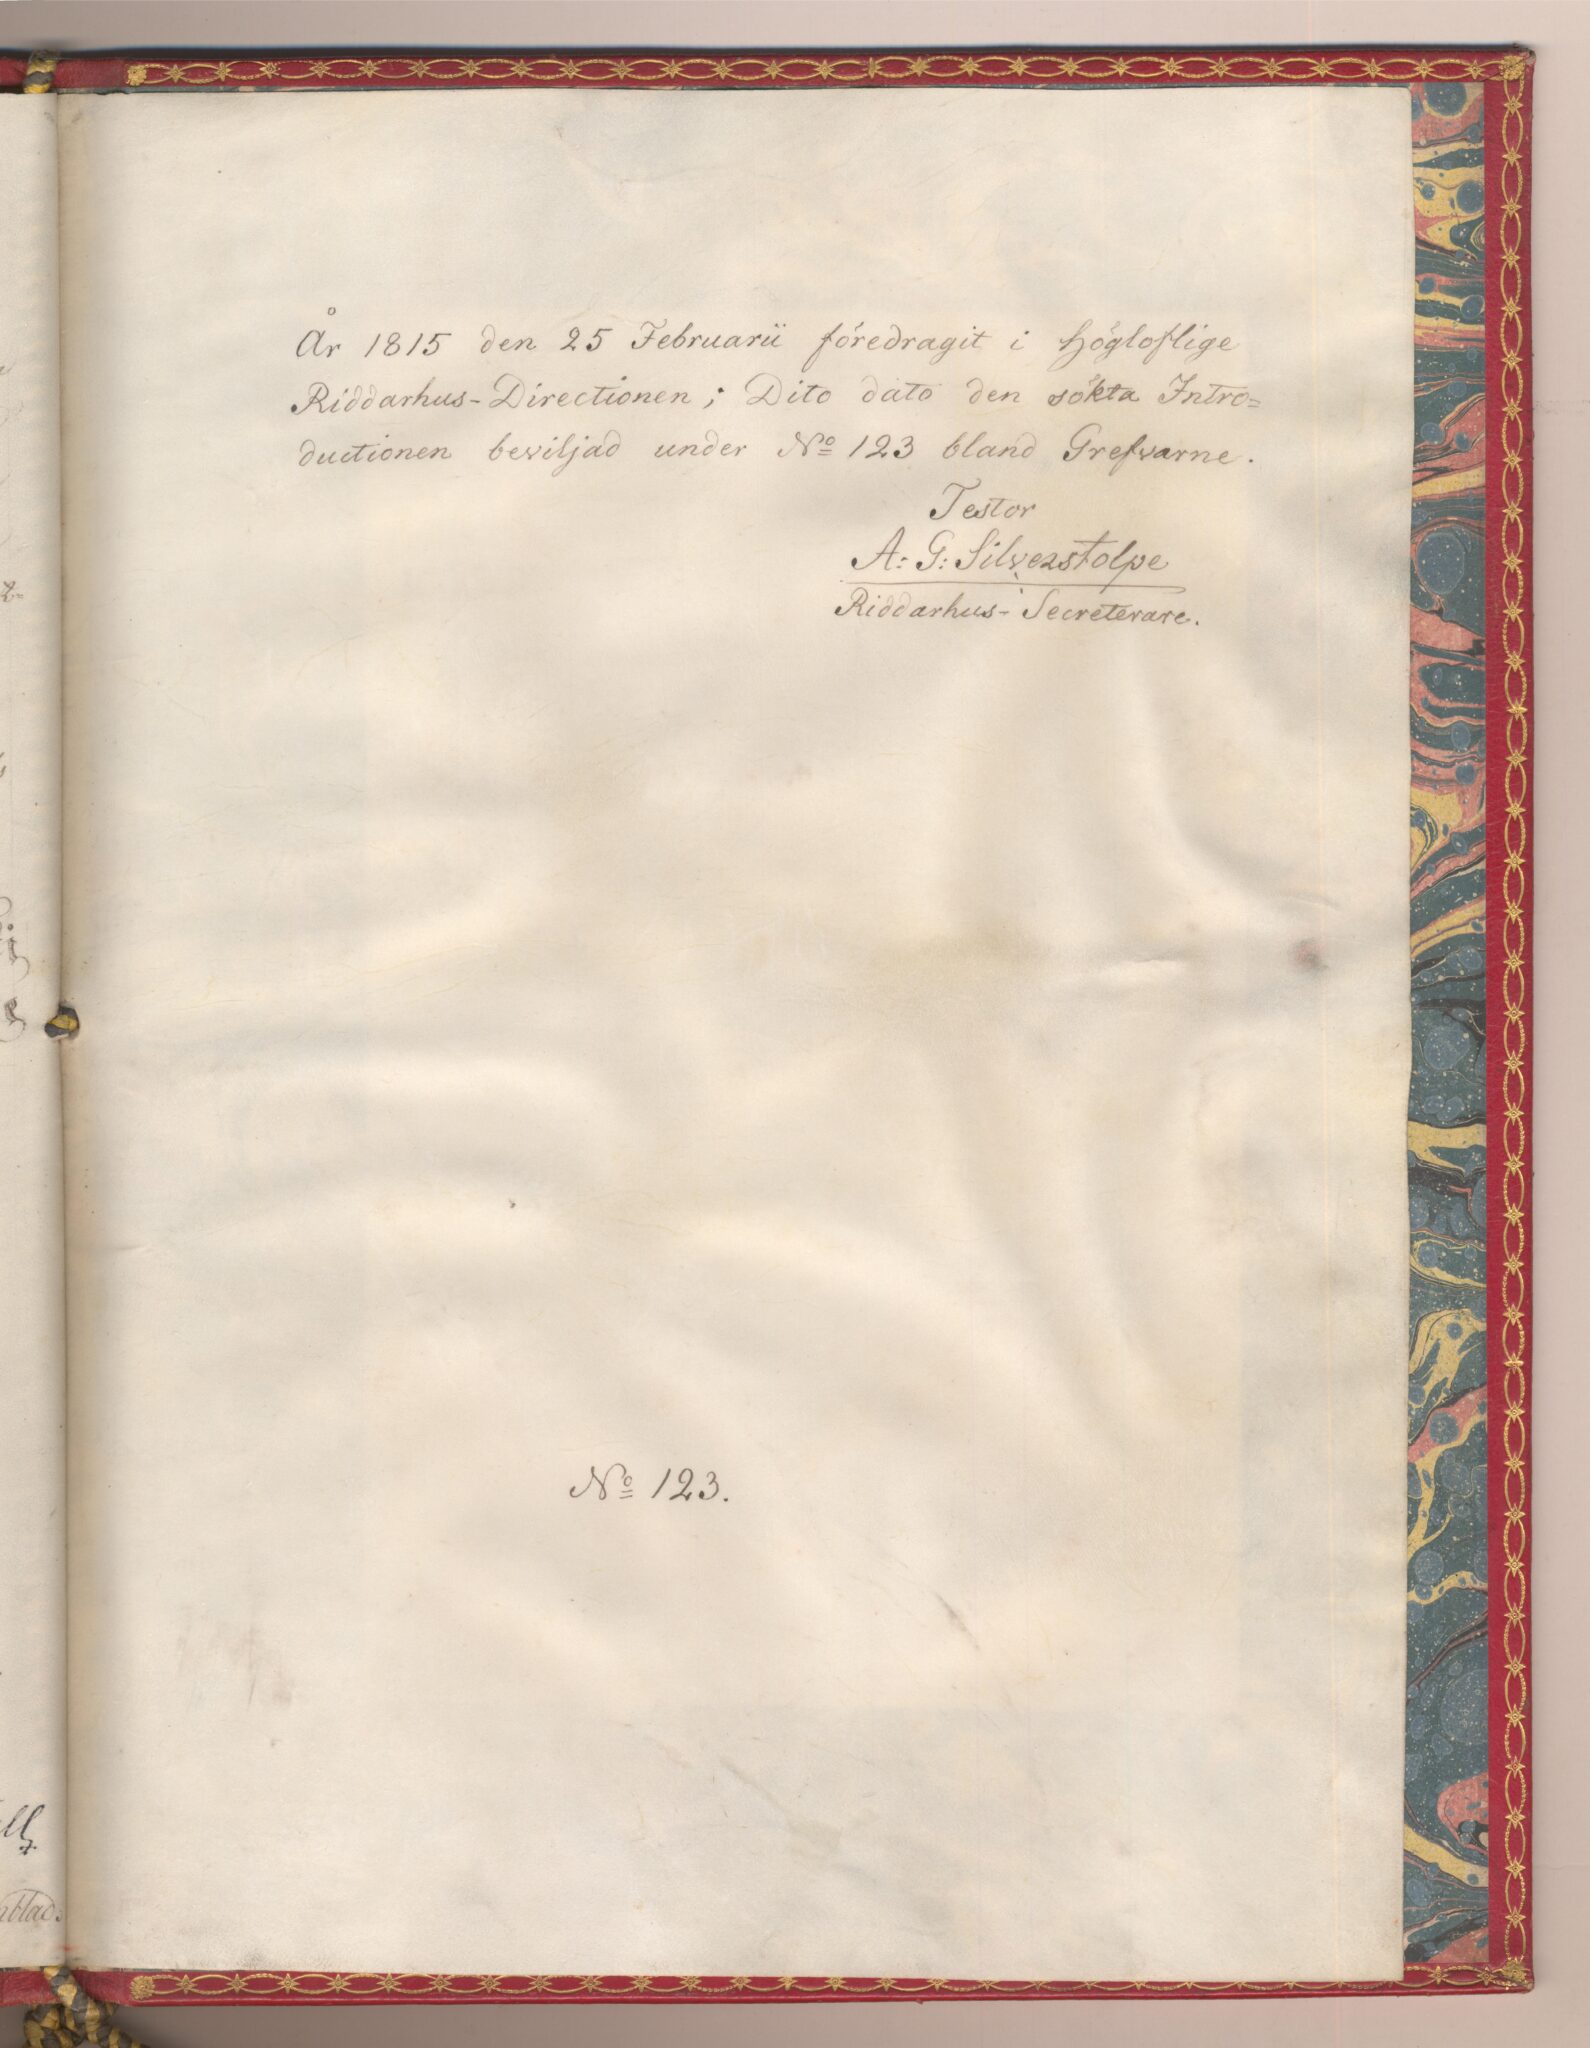 År 1815 den 25 Februarii föredragit i Högloflige
Riddarhus-Directionen; Dito dato den sökta Intro=
ductionen beviljad under No 123 bland Grefvarne.
Testor
A: G: Silverstolpe
Riddarhus-Secreterare.
No 123.